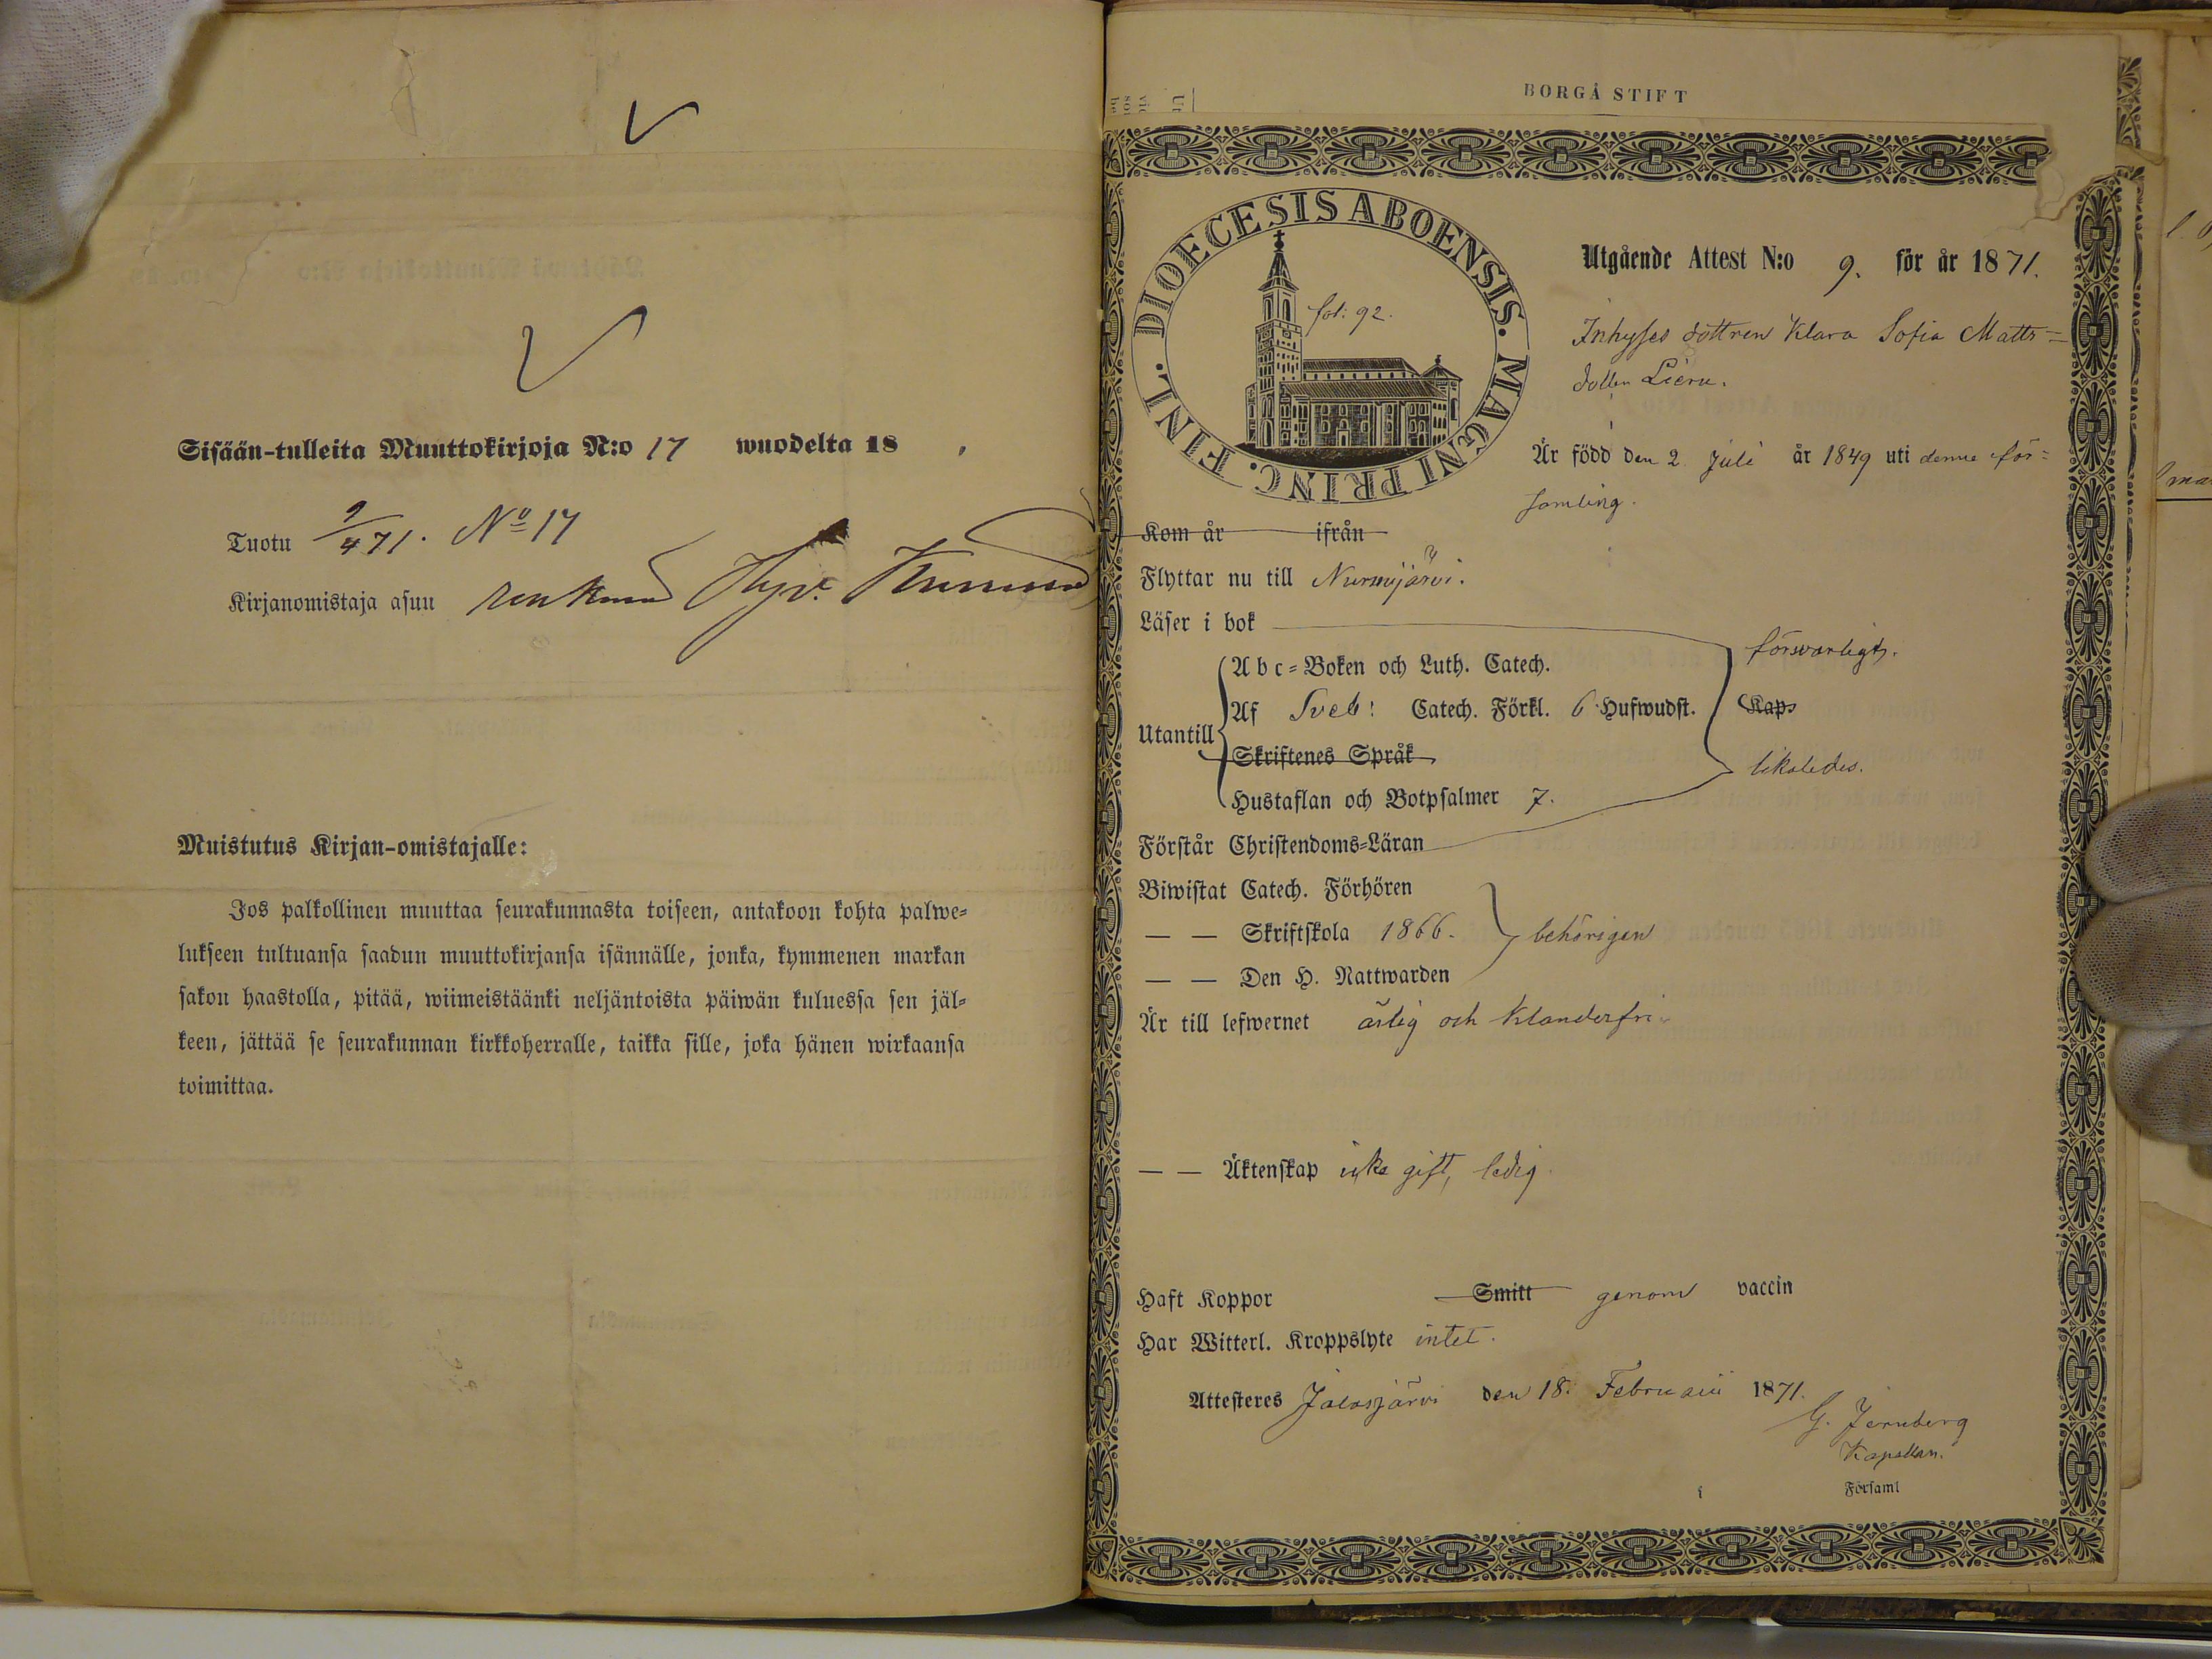 Sisään-tulleita Muuttokirjoja N:o 17 wuodelta 18
Tuotu 9/4 71. No 17
Kirjanomistaja asuu renkinä Hyv.
Muistutus Kirjan-omistajalle:
Jos palkollinen muuttaa seurakunnasta toiseen, antakoon kohta palwe-
lukseen tultuansa saadun muuttokirjansa isännälle, jonka, kymmenen markan
sakon haastolla, pitää, wiimeistäänki neljäntoista päiwän kuluessa sen jäl-
keen, jättää se seurakunnan kirkkoherralle, taikka sille, joka hänen wirkaansa
toimittaa.
BORGÅ STIFT
DIOECESIS ABOENSIS. MAGNI PRINC. FINL.
fol: 92.
Utgående Attest N:o 9. för år 1871.
Inhyses dottren Klara Sofia Matts=
dotter
Är född den 2 Juli år 1849 uti denne för=
samling.
Kom år ifrån
Flyttar nu till Nurmijärvi.
Läser i bok försvarligt.
Utantill
Abc=Boken och Luth. Catech.
Af Sveb: Catech. Förkl. 6 Hufwudst. Kap.
Skriftenes Språk
Hustaflan och Botpsalmer 7. likaledes.
Förstår Christendoms=Läran
Biwistat Catech. Förhören
— — Skriftskola 1866. behörigen
— — Den H. Nattwarden
Är till lefwernet ärlig och klanderfri
— — Äktenskap icke gift, ledig
Haft Koppor Smitt genom vaccin
Har Witterl. Kroppslyte intet.
Attesteres Jalasjärvi den 18. Februarii 1871.
G. Jernberg
Kapellan.
Församl